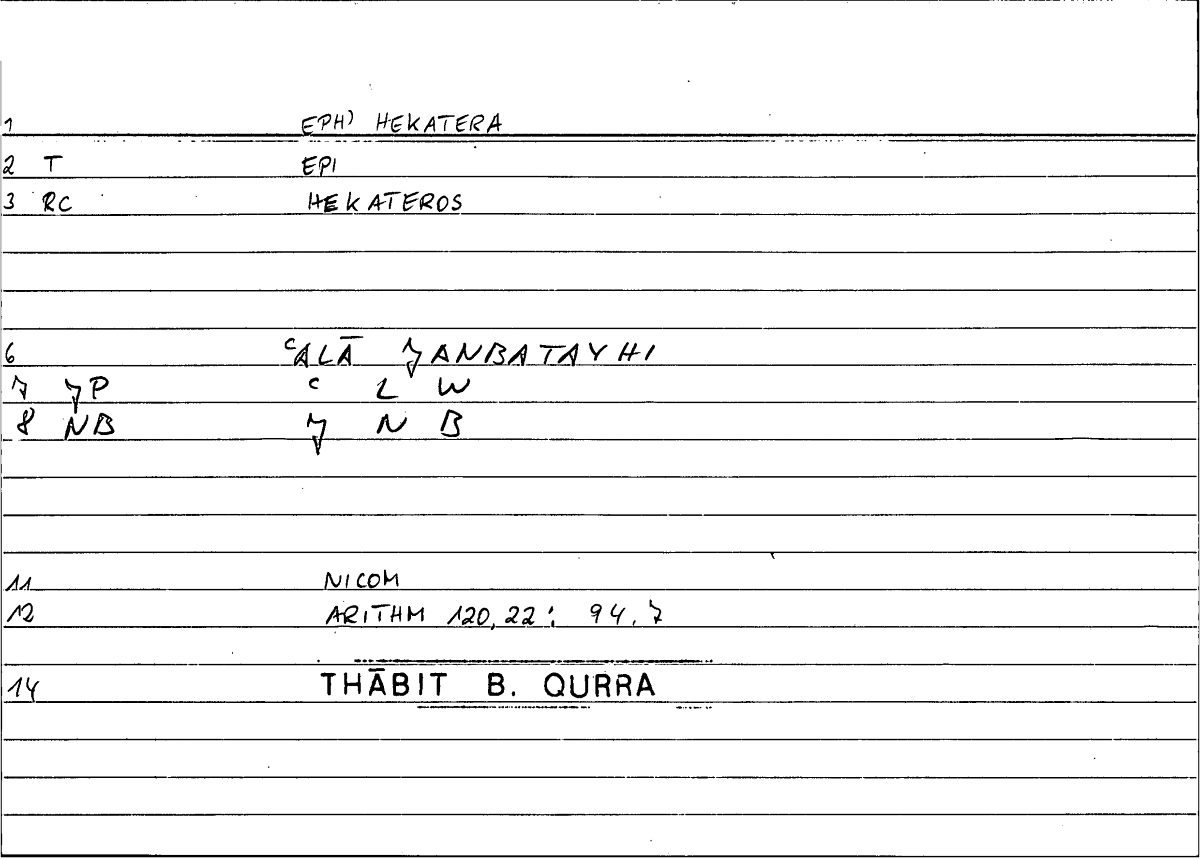 1 EPH) HEKATERA
2 T EPI
3 RC HEKATEROS
6 ʿALĀ JANBATAYHI
7 JP ʿ L W
8 NB J N B
11 NICOM
12 ARITHM 120,22; 94.7
14 THĀBIT B. QURRA